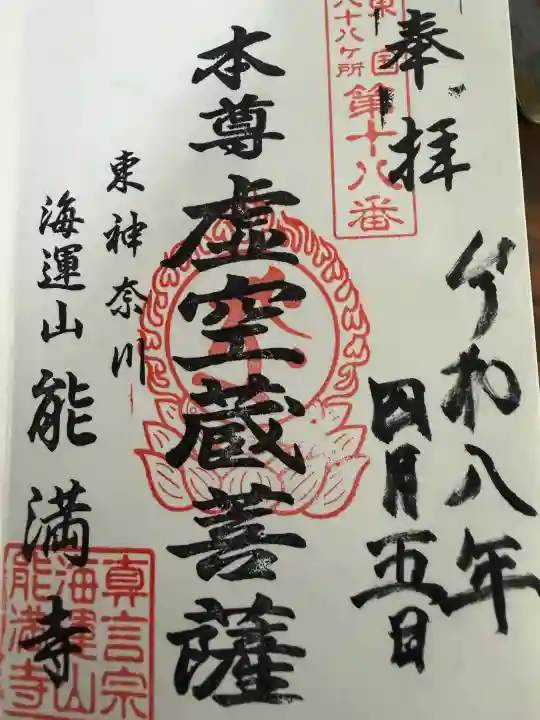 奉拝
東国
八十八ヶ所
第十八番
令和八年
四月五日
本尊 虚空蔵菩薩
東神奈川
海運山 能満寺
真言宗
海運山
能満寺